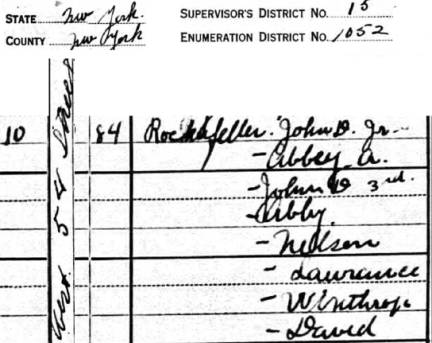 STATE New York. SUPERVISOR'S DISTRICT No. 15
COUNTY New York ENUMERATION DISTRICT No. 1052
West 54 Street
10 84 Rockefeller. John D. Jr.
- Abbey A.
- John D 3rd.
- Abby
- Nellson
- Lawrance
- Winthrop
- David